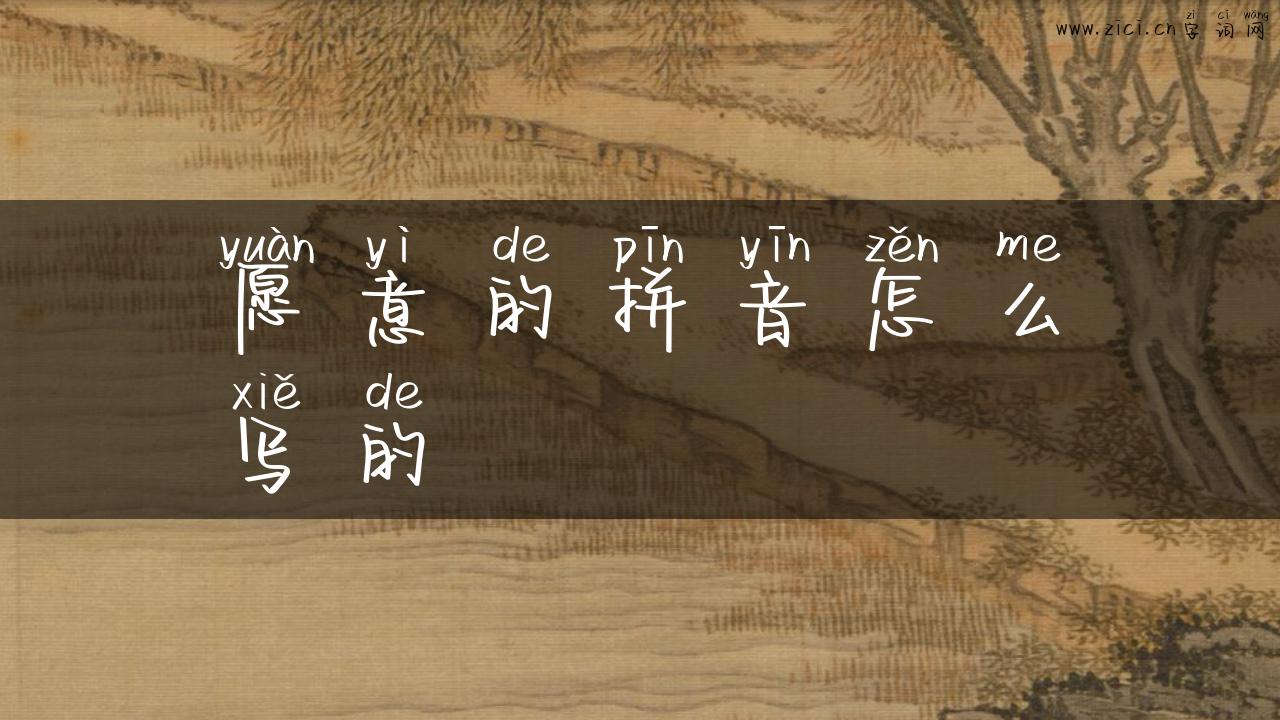 zì cí wǎng
www.zici.cn字词网
yuàn yì de pīn yīn zěn me
愿意的拼音怎么
xiě de
写的